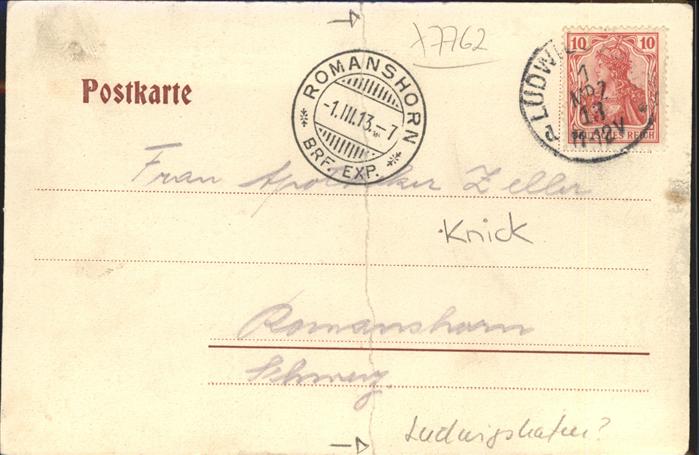 x7762
10 10
DEUTSCHES REICH
LUDWI
1
11-12V
Postkarte
ROMANSHORN
-1.III.13.-7
BRF. EXP.
Frau Apotheker Zeller
Knick
Romanshorn
Schweiz
Ludwigshafen?